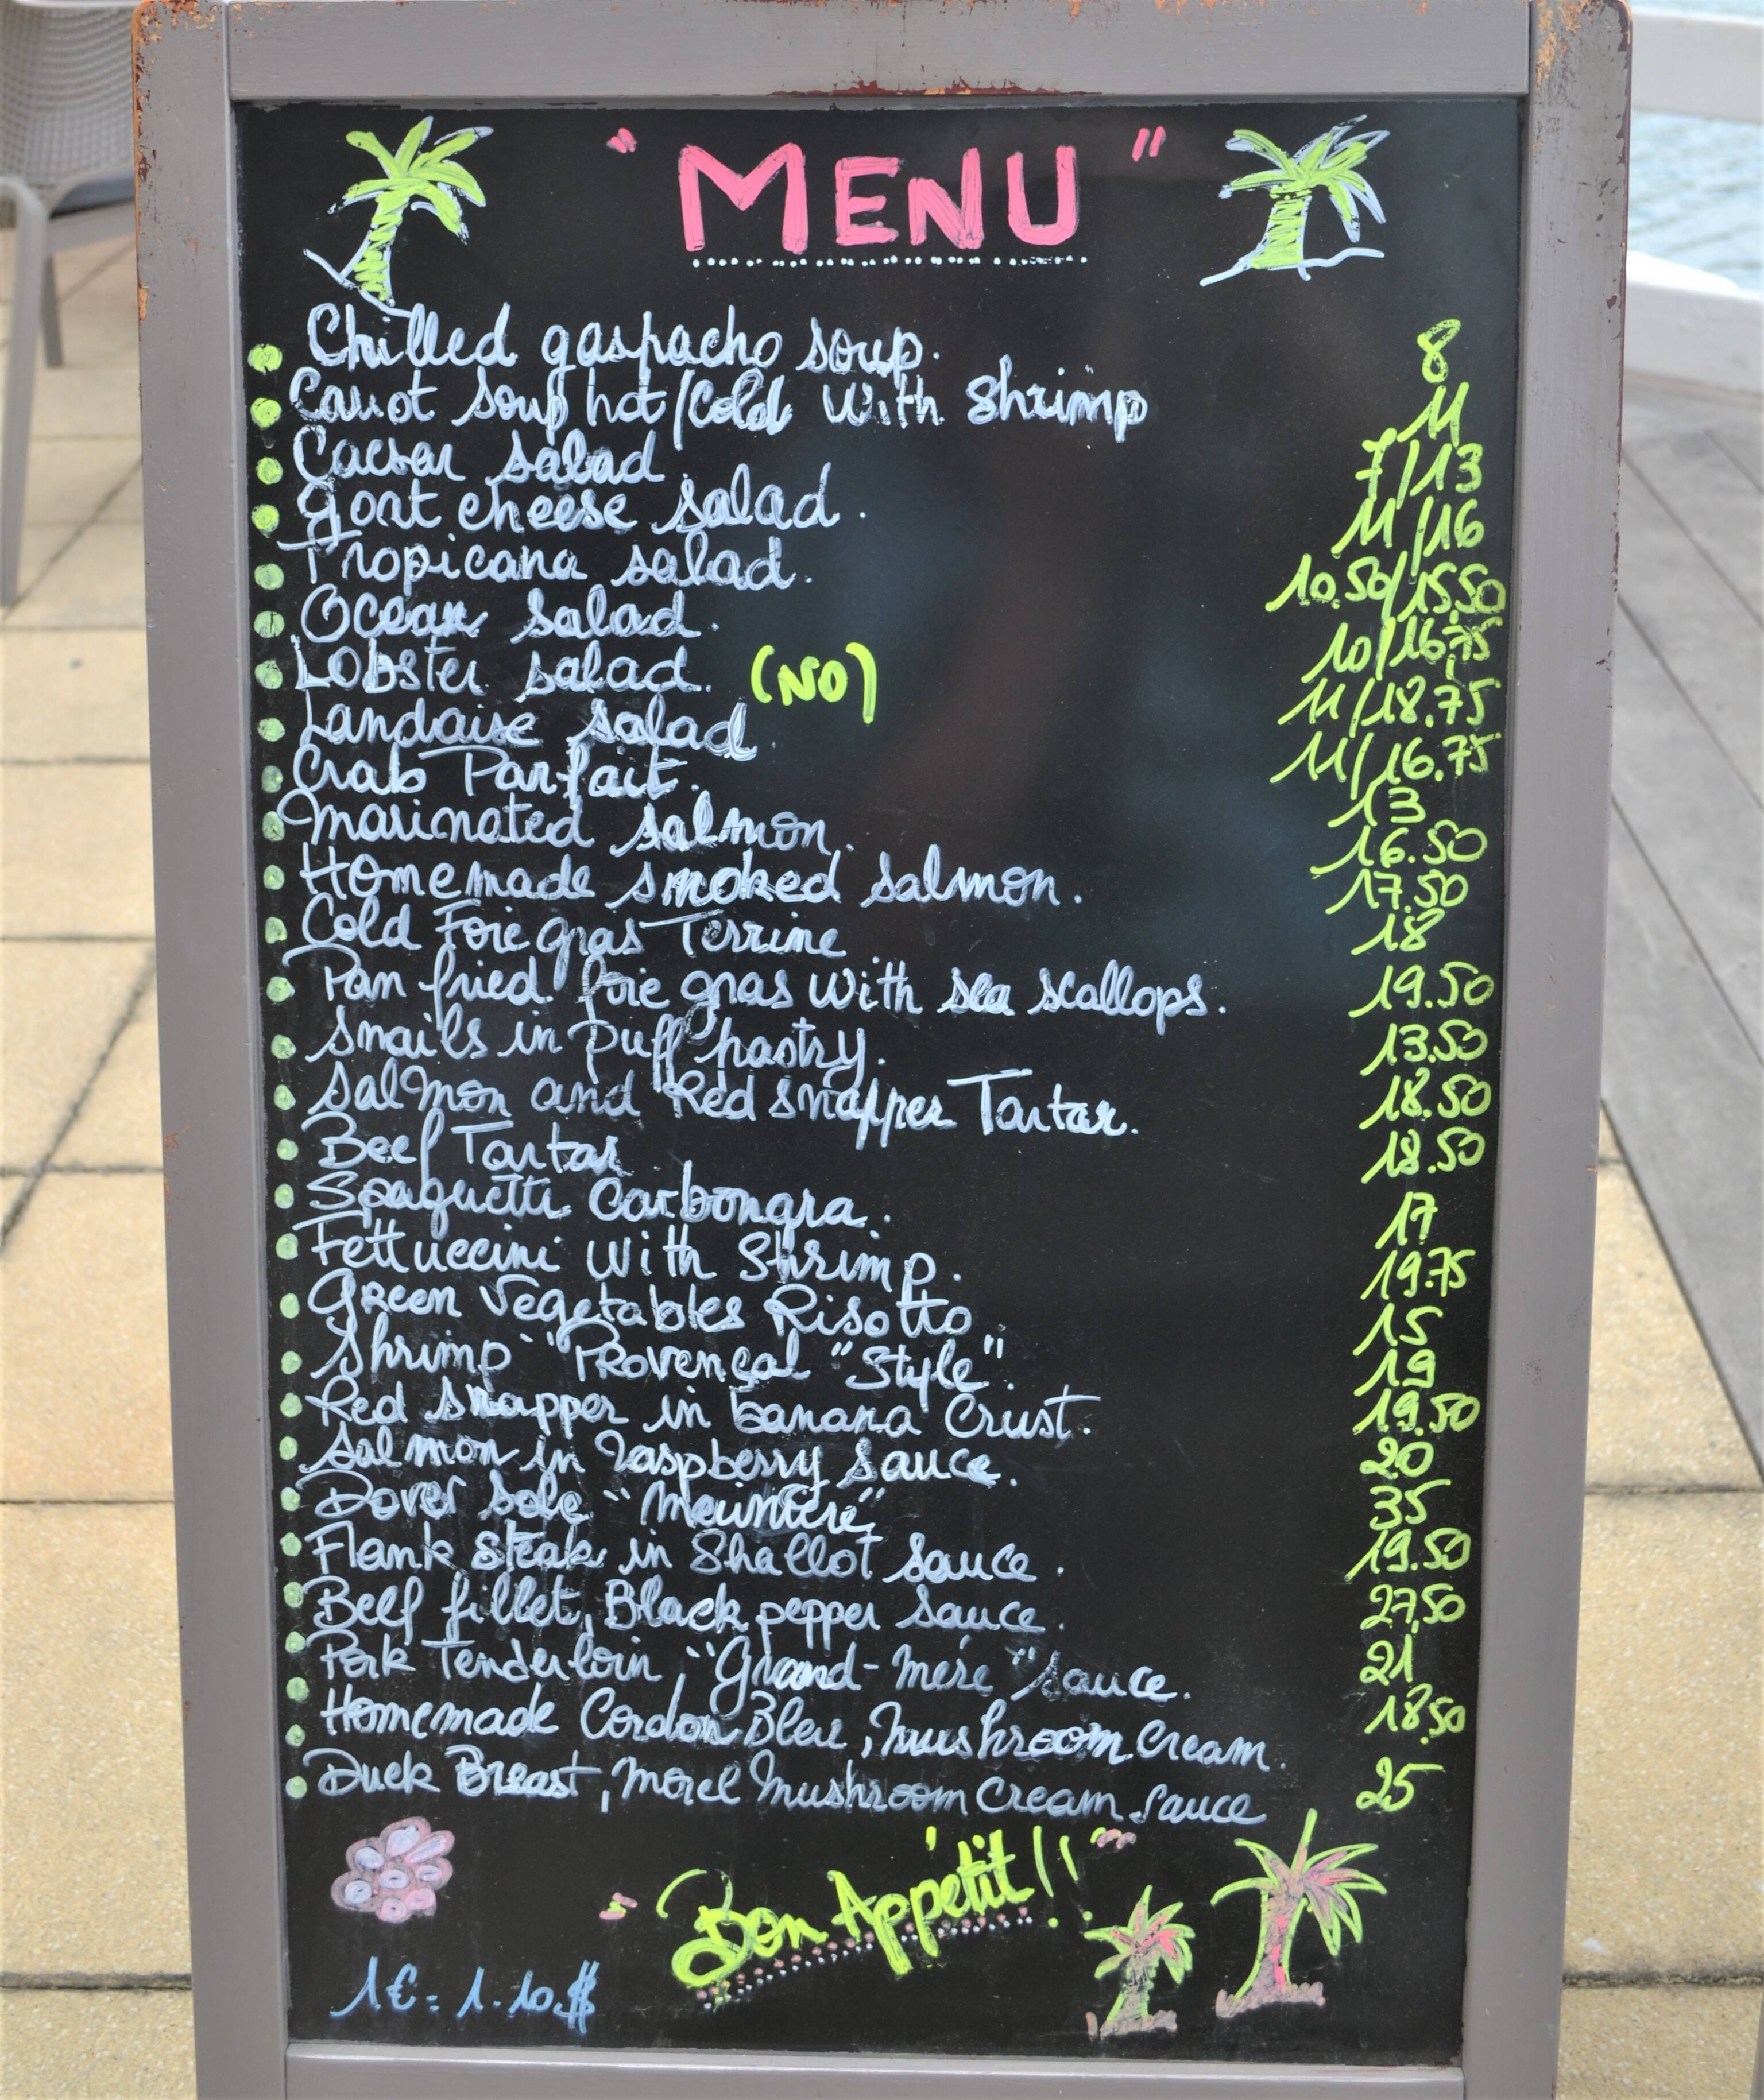 "MENU"
Chilled gaspacho soup. 8
Carrot soup hot/cold with shrimp 11
Caesar salad. 7/13
goat cheese salad. 11/16
Tropicana salad. 10.50/15.50
Ocean salad. 10/16.75
Lobster salad. (NO) 11/18.75
Landaise salad. 11/16.75
Crab Parfait. 13
Marinated salmon. 16.50
Homemade smoked salmon. 17.50
Cold Foie gras Terrine. 18
Pan fried foie gras with sea scallops. 19.50
Snails in puff pastry. 13.50
Salmon and Red snapper Tartar. 18.50
Beef Tartar. 18.50
Spaguetti Carbonara. 17
Fettuccini with Shrimp. 19.75
Green Vegetables Risotto. 15
Shrimp "Provençal "Style". 19
Red snapper in banana Crust. 19.50
Salmon in raspberry sauce. 20
Dover Sole "Meunière" 35
Flank steak in Shallot sauce. 19.50
Beef fillet, Black pepper sauce. 27.50
Pork Tenderloin, "Grand-mère" sauce. 21
Homemade Cordon Bleu, mushroom cream. 18.50
Duck Breast, Morel Mushroom Cream Sauce 25
"Bon Appétit!!"
1€ = 1.10$